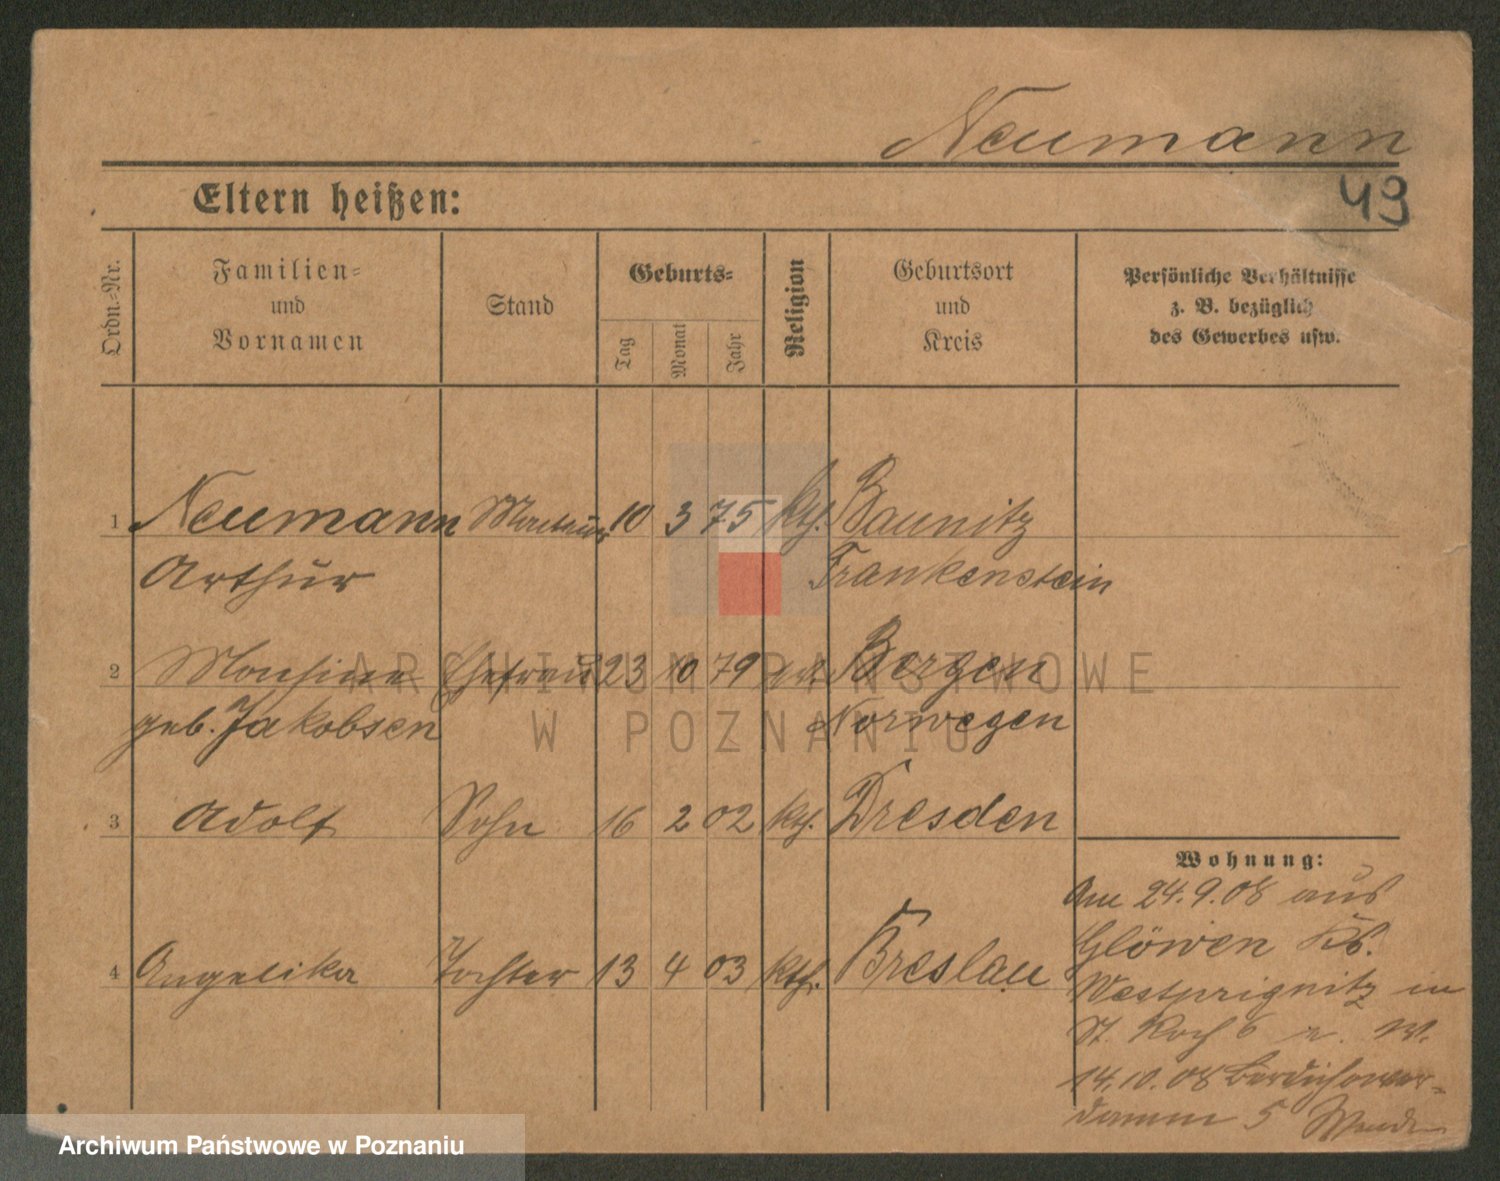 Neumann
49
Eltern heißen:
Ordn.-Nr.
Familien-
und
Vornamen
Stand
Geburts-
Tag
Monat
Jahr
Religion
Geburtsort
und
Kreis
Persönliche Verhältnisse
z. B. bezüglich
des Gewerbes usw.
1 Neumann Monteur 10 3 75 kth. Baunitz
Arthur Frankenstein
2 Monsine Ehefrau 23 10 79 ev. Bergen
geb. Jakobsen Norwegen
3 Adolf Sohn 16 2 02 kth. Dresden
4 Angelika Tochter 13 4 03 kth. Breslau
Wohnung:
Am 24.9.08 aus
Glöwen Kr.
Westprignitz in
St. Roch 6 n. W.
14.10.08 Berdichower-
damm 5 Wenden
ARCHIWUM PAŃSTWOWE
W POZNANIU
Archiwum Państwowe w Poznaniu